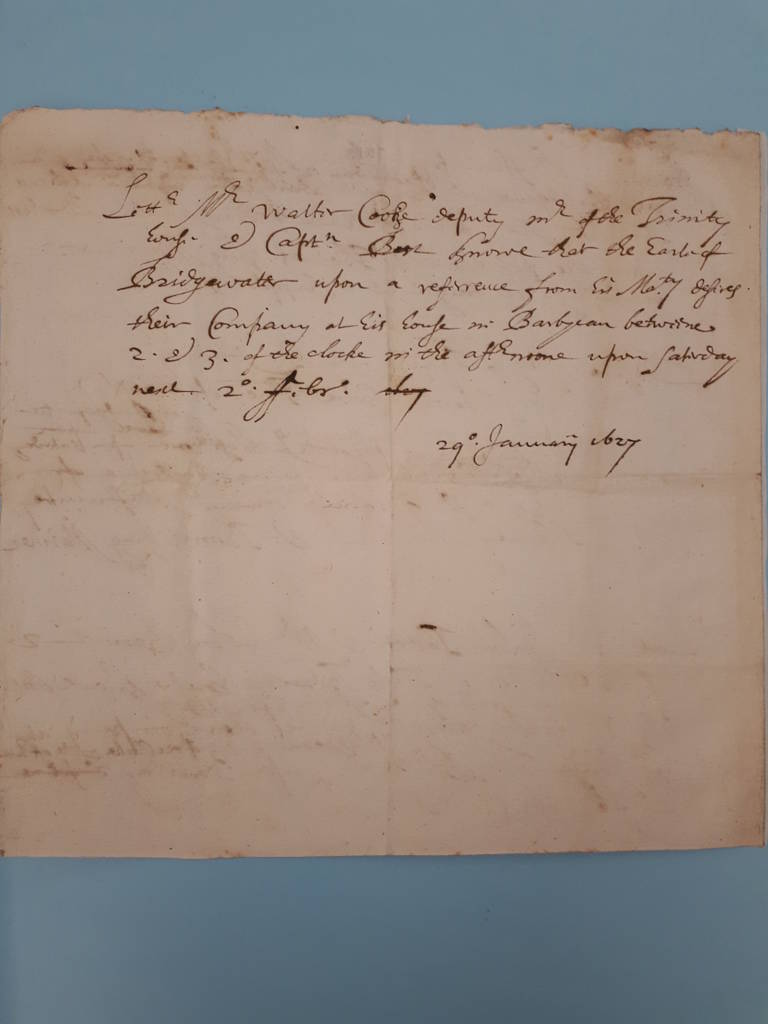 Lettr Mr Walter Cooke deputy mr of the Trinity
house & Captn Best knowe that the Earle of
Bridgewater upon a referrence from his Maty desires
their Company at his house in Barbycan betweene
2. & 3. of the clocke in the afternoone upon Saturday
next. 2o. Febr. day
29o. January 1627